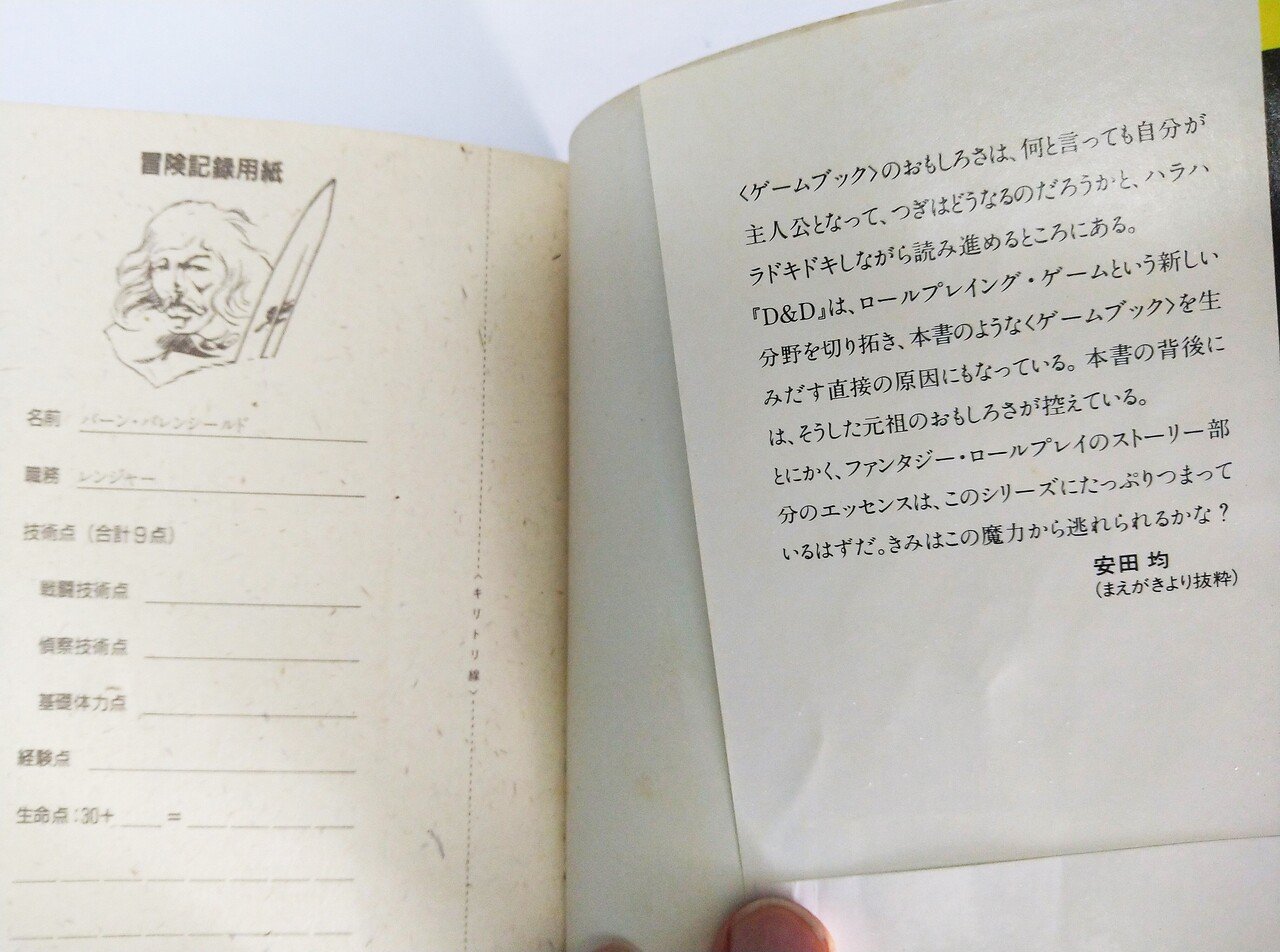 冒険記録用紙
名前 バーン・バレンシールド
職務 レンジャー
技術点（合計9点）
戦闘技術点
偵察技術点
基礎体力点
経験点
生命点：30＋ ＝
〈キリトリ線〉
〈ゲームブック〉のおもしろさは、何と言っても自分が
主人公となって、つぎはどうなるのだろうかと、ハラハ
ラドキドキしながら読み進めるところにある。
『D&D』は、ロールプレイング・ゲームという新しい
分野を切り拓き、本書のような〈ゲームブック〉を生
みだす直接の原因にもなっている。本書の背後に
は、そうした元祖のおもしろさが控えている。
とにかく、ファンタジー・ロールプレイのストーリー部
分のエッセンスは、このシリーズにたっぷりつまって
いるはずだ。きみはこの魔力から逃れられるかな？
安田 均
（まえがきより抜粋）